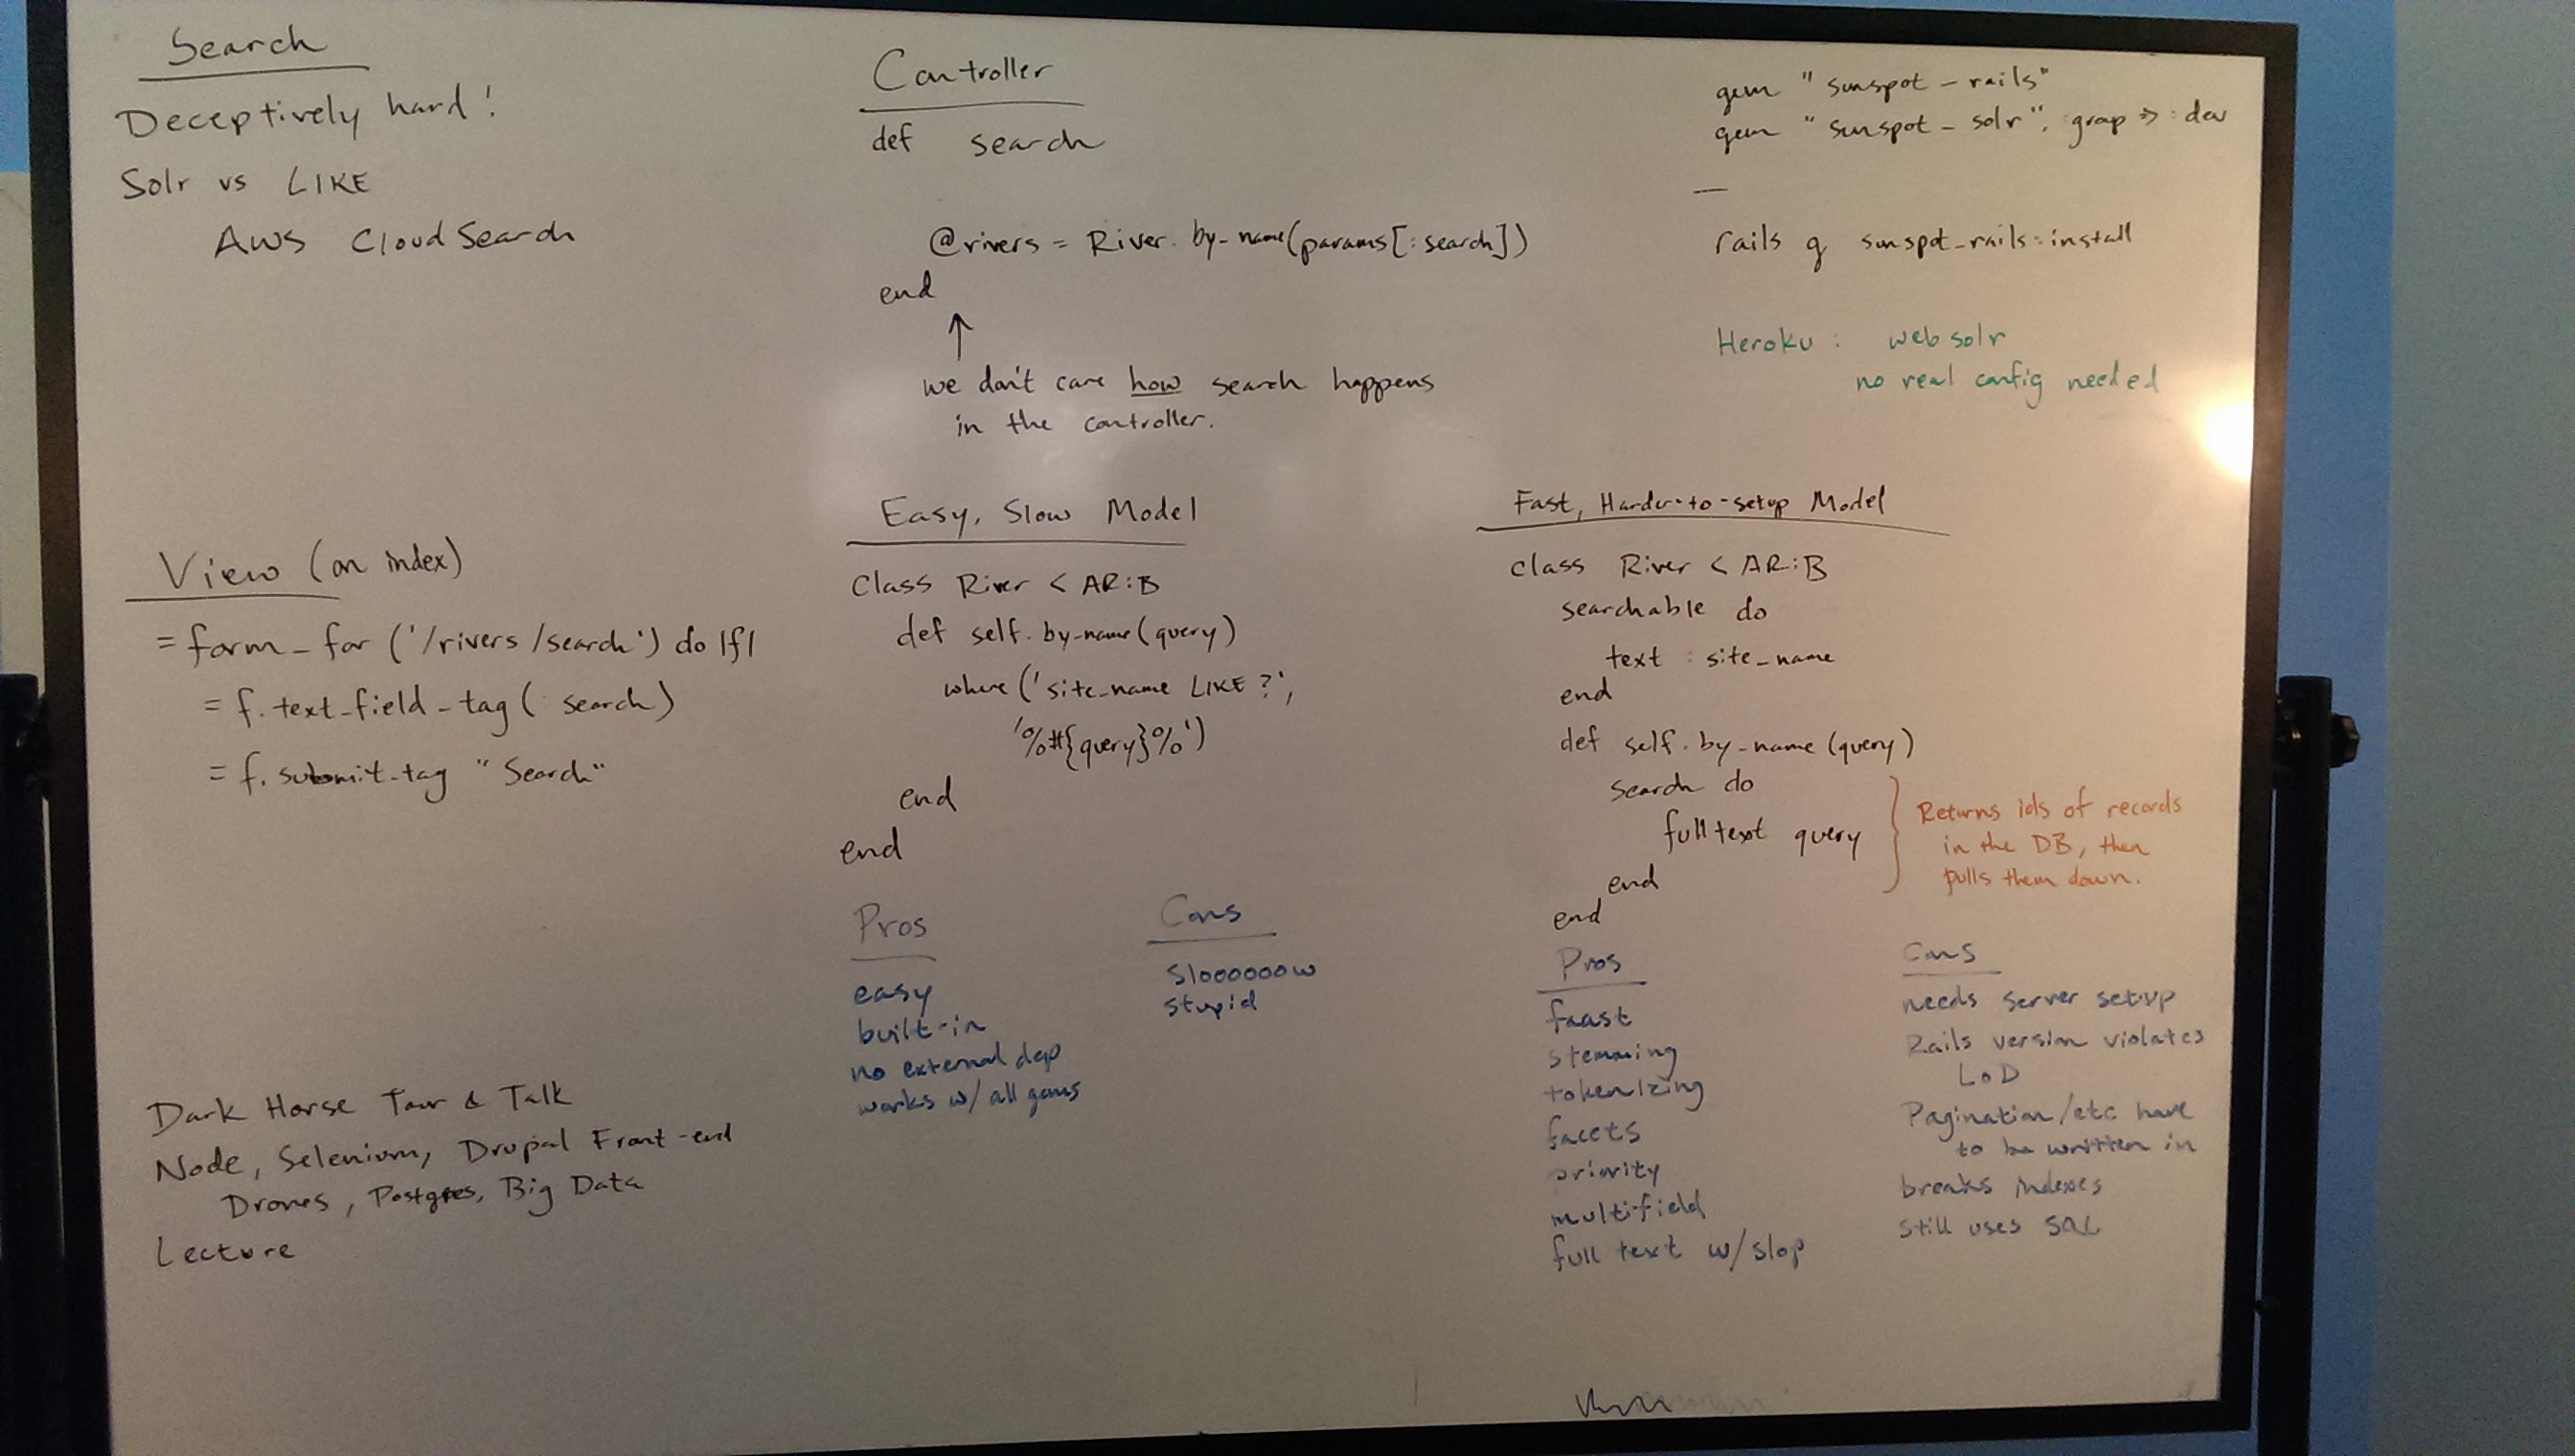 Search
Deceptively hard!
Solr vs LIKE
AWS CloudSearch
View (on index)
= form_for ('/rivers/search') do |f|
= f.text_field_tag (:search)
= f.submit_tag "Search"
Dark Horse Tour & Talk
Node, Selenium, Drupal Front-end
Drones, Postgres, Big Data
Lecture
Controller
def search
@rivers = River.by_name(params[:search])
end
↑
we don't care how search happens
in the controller.
Easy, Slow Model
Class River < AR:B
def self.by_name(query)
where('site_name LIKE ?',
'%#{query}%')
end
end
Pros
easy
built-in
no external dep
works w/ all gems
Cons
Slooooooow
stupid
gem "sunspot_rails"
gem "sunspot_solr", :group => :dev
—
rails g sunspot_rails:install
Heroku: websolr
no real config needed
Fast, Harder-to-setup Model
class River < AR:B
searchable do
text :site_name
end
def self.by_name(query)
search do
fulltext query
end
end
Returns ids of records
in the DB, then
pulls them down.
Pros
faast
stemming
tokenizing
facets
priority
multifield
full text w/slop
Cons
needs server setup
Rails version violates
LoD
Pagination/etc have
to be written in
breaks indexes
still uses SQL